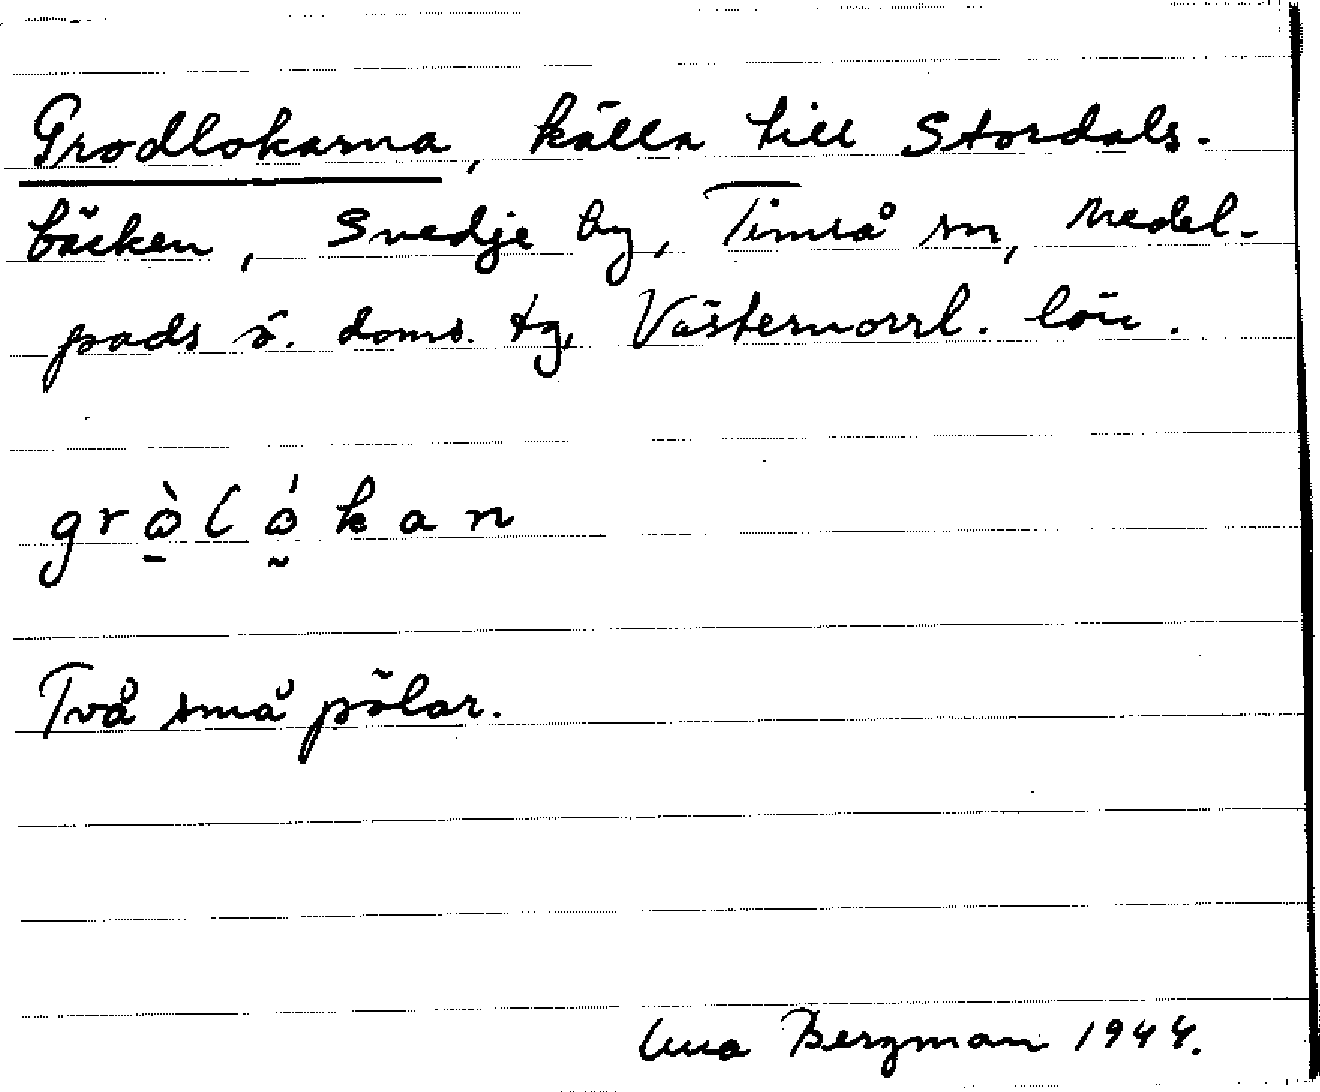 Grodlokarna, källa till Stordals-
bäcken, Svedje by, Timrå sn, Medel-
pads ö. doms. tg, Västernorrl. län.
grò̱ló̰kan
Två små pölar.
Bergman 1944.